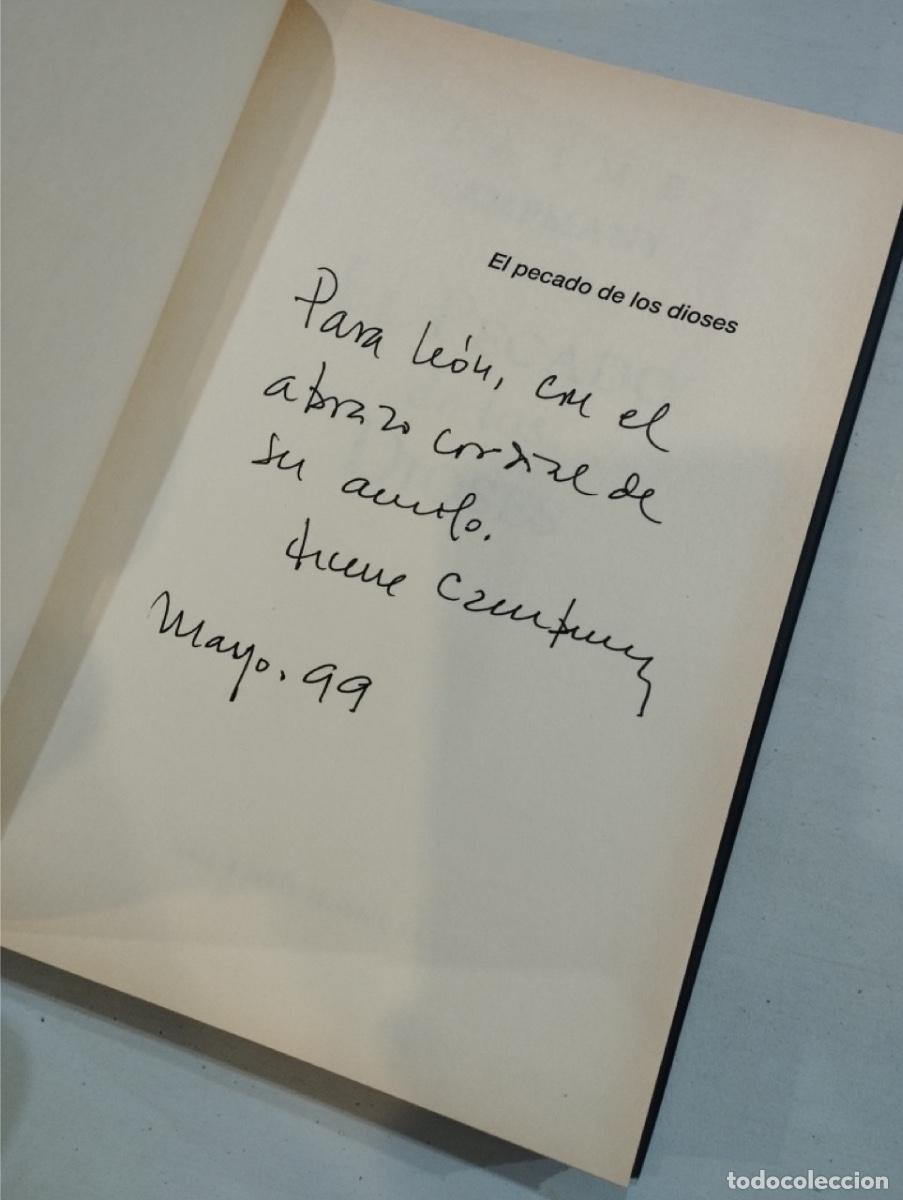 El pecado de los dioses
Para León, con el
abrazo cordial de
su
Mayo. 99
todocoleccion